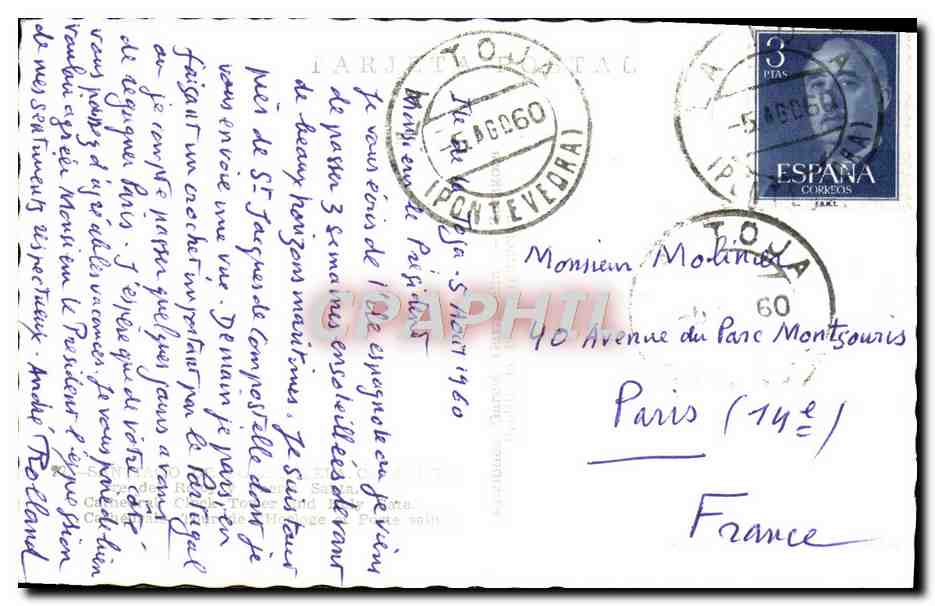 TARJETA POSTAL
Ile de la Toja - 5 Août 1960
Monsieur le Président
Je vous écris de l'Ile espagnole où je viens
de passer 3 semaines ensoleillées devant
de beaux horizons maritimes. Je suis tout
près de St Jacques de Compostelle dont je
vous envoie une vue. Demain je pars en
faisant un crochet important par le Portugal
où je compte passer quelques jours avant
de regagner Paris. J'espère que de votre côté
vous jouez d'agréables vacances. Je vous prie de bien
vouloir agréer Monsieur le Président l'expression
de mes sentiments respectueux. André Rolland
SANTIAGO
Santa.
Cathedral Clock Tower and Holy Gate
Cathédrale Tour de l'Horloge et Porte sainte
TOJA
-5 AGO 60
(PONTEVEDRA)
LA TOJA
-5 AGO 60
3
PTAS
ESPAÑA
CORREOS
TOJA
60
Monsieur Molinier
40 Avenue du Parc Montsouris
Paris (14e)
France
CPAPHIL